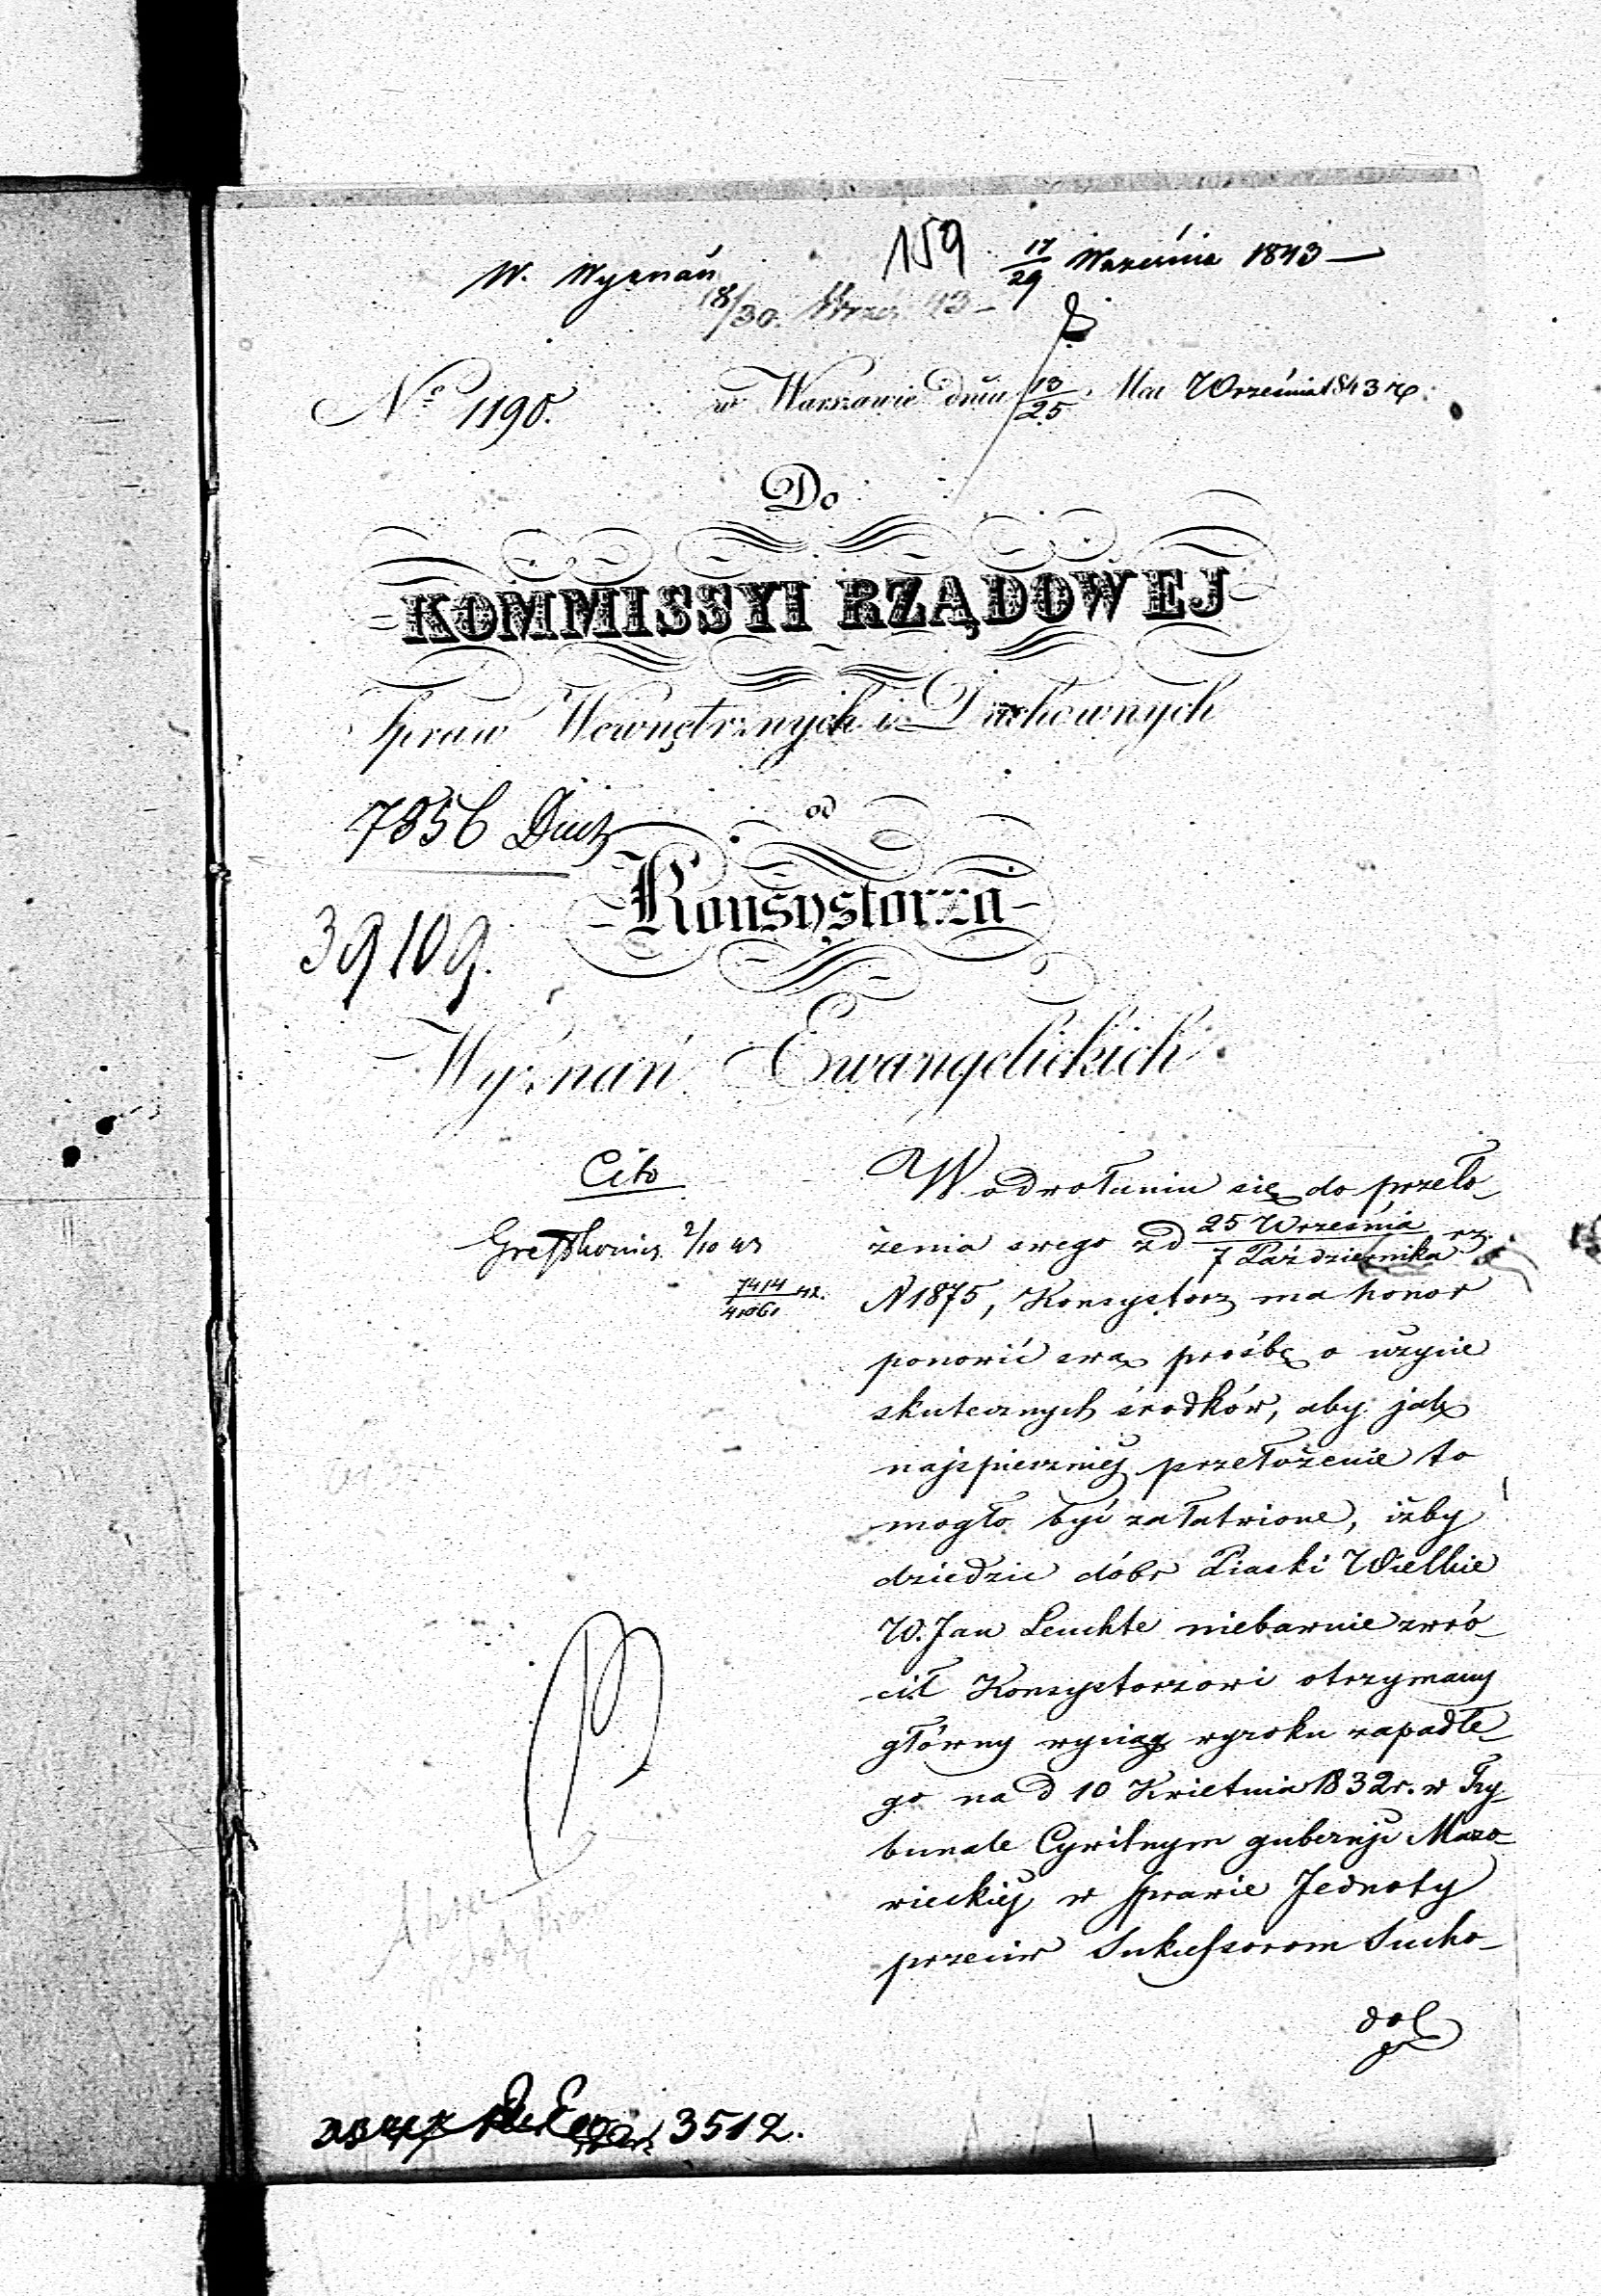 159
W. Wyznań
17/29 Września 1843 —
18/30. Wrześ 43 —
No 1190.
w Warszawie dnia 13/25 Mca Września 1843 r.
Do
KOMMISSYI RZĄDOWEJ
Spraw Wewnętrznych i Duchownych
7856 Duch
od
Konsystorza
39109.
Wyznań Ewangelickich
Cito
W odwołaniu się do przeło-
2/10 43
żenia swego z d 25 Września / 7 Października rz.
7414/41061 42.
N 1875, Konsystorz ma honor
ponowić swą prośbę o użycie
skutecznych środków, aby jak
najspieszniej przełożenie to
mogło być załatwione, iżby
dziedzic dóbr Piaski Wielkie
W. Jan Leuchte niebawnie zwró-
cił Konsystorzowi otrzymany
główny wyciąg wyroku zapadłe-
go na d 10 Kwietnia 1832 r. w Try-
bunale Cywilnym gubernji Mazo-
wieckiej w sprawie Jednoty
przeciw Sukcessorom Sucho-
dol
3512.